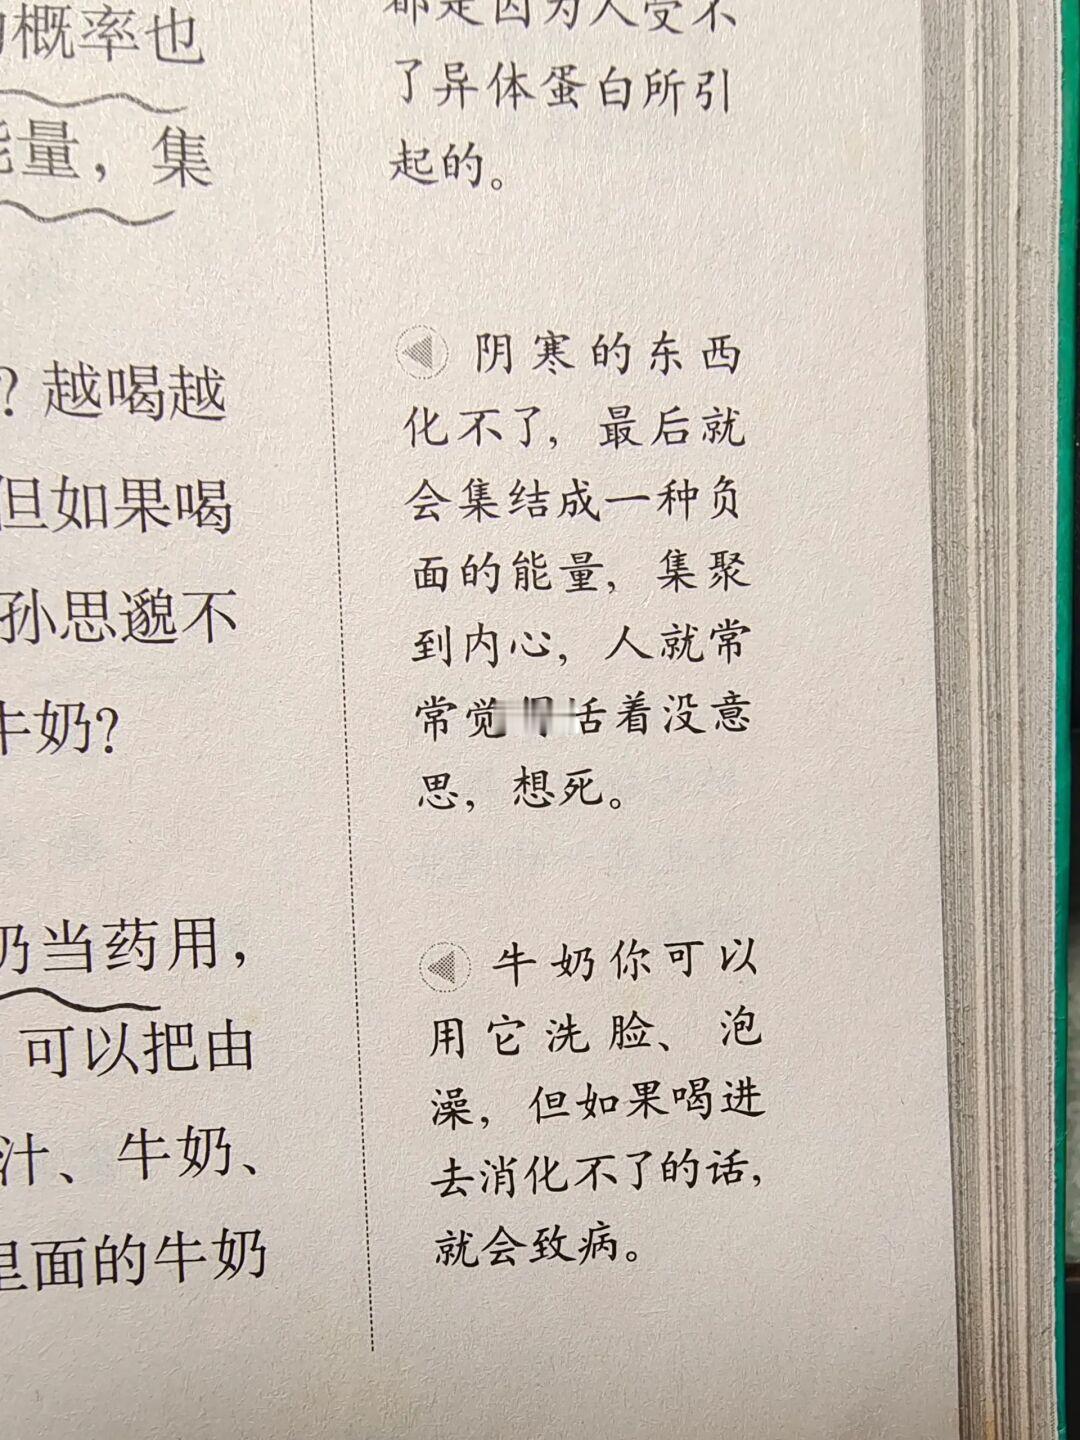 概率也
量，集
？越喝越
但如果喝
孙思邈不
牛奶？
奶当药用，
可以把由
汁、牛奶、
里面的牛奶
都是因为人受不
了异体蛋白所引
起的。
阴寒的东西
化不了，最后就
会集结成一种负
面的能量，集聚
到内心，人就常
常觉 活着没意
思，想死。
牛奶你可以
用它洗脸、泡
澡，但如果喝进
去消化不了的话，
就会致病。